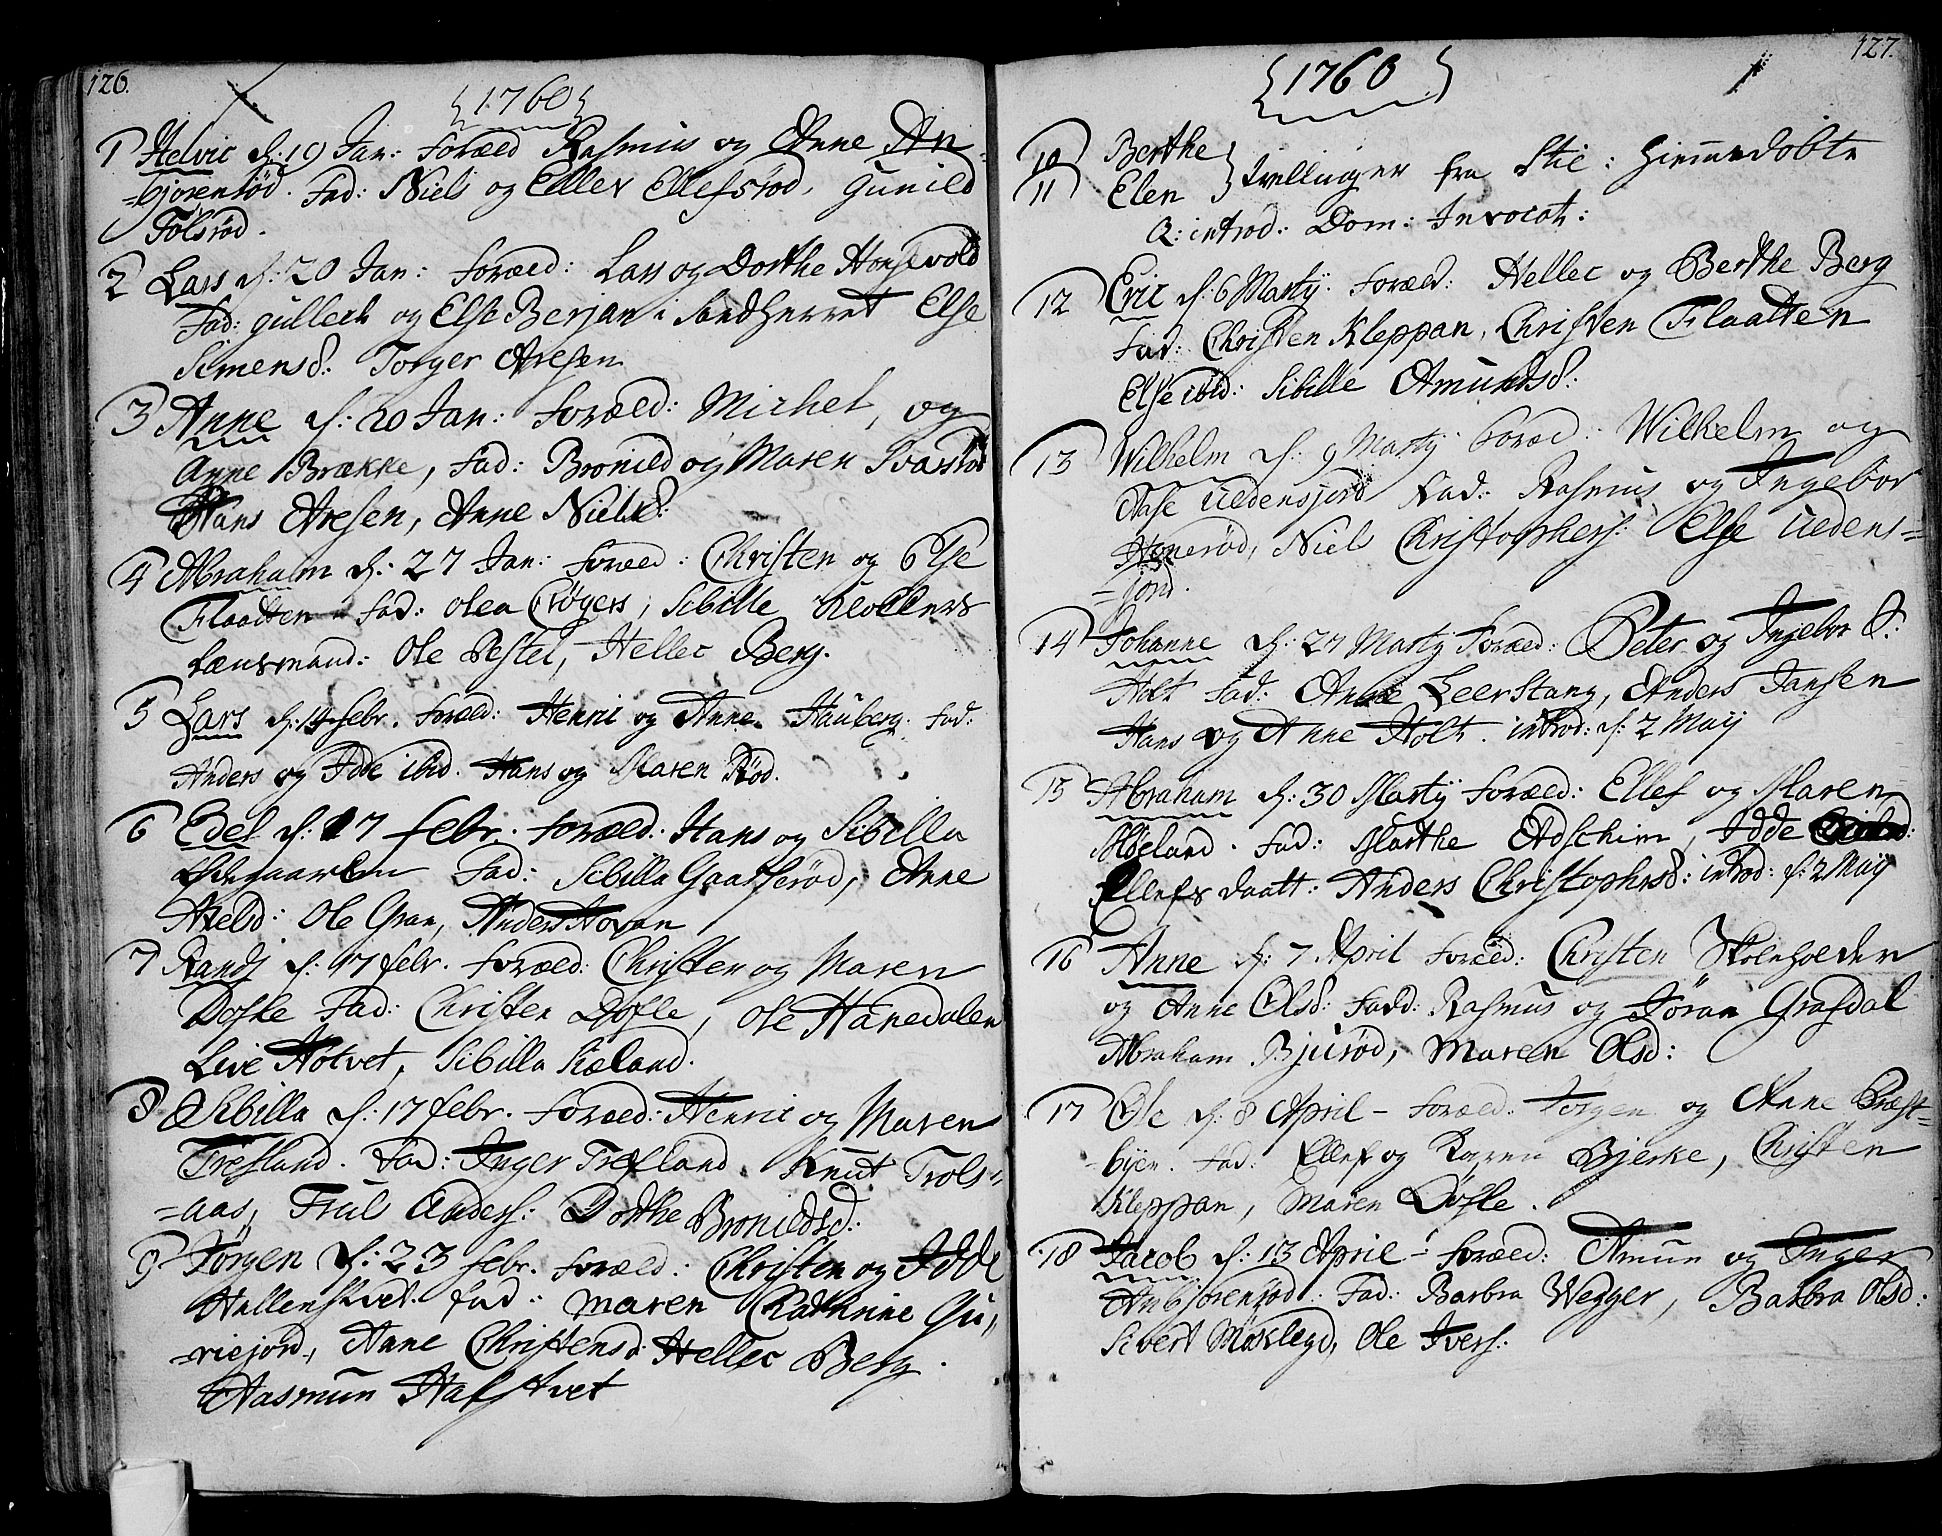 126.
1760
1 Helvic d: 19 Jan: foræld Rasmus og Anne An-
=bjørensrød. Fad: Niels og Eller Ellefsrød, Gunild
Tølsrød.
2 Lars d: 20 Jan: foræld: Lars og Dorthe Honsevold
Fad: gullech og Else Berjan i Sandherret Else
Simensd: Torger Aresen
3 Anne d: 20 Jan: foræld: Michel, og
Anne Brække, Fad: Bronild og Maren
Hans Aresen, Anne Nielsd:
4 Abraham d: 27 Jan: foræld: Christen og Else
Flaatten Fad: Olea Crøgers, Sibille
Lænsmand: Ole Pestel, Hellec Berg.
5 Lars d: 14 febr. foræld: Henric og Anne Hauberg. Fad:
Anders og Idde ibid. Hans og Maren Rød.
6 Edel d: 17 febr. foræld: Hans og Sibilla
Fad: Sibilla Gaasserød, Anne
Axeld: Ole Gran, Anders Hovan
7 Randj d: 17 febr. foræld: Christen og Maren
Dofle Fad: Christen Dofle, Ole Hanedalen
Live Holvet, Sibilla Kieland.
8 Sibilla d: 17 febr. foræld: Henric og Maren
Trefland. Fad: Inger Trefland Knut Trols=
=aas, Trul Anders: Dorthe Bronildsd:
9 Jørgen d: 23 febr. foræld: Christen og Idde
Hallenstvet. Fad: Maren Cathrine Gu=
=riejord, Anne Christensd Hellec Berg.
Aasmun Hafstvet
127.
1760
10 Berthe
11 Elen } tvellinger fra Stie: Hiemmedøbte
Q: introd: Dom: Invocat:
12 Eric d: 6 Martij. foræld: Hellec og Berthe Berg
Fad: Christen Kleppan, Christen Flaatten
Else ibid: Sibille Amundsd:
13 Wilhelm d: 9 Martij foræld: Wilhelm og
Aase Uedensjord Fad: Rasmus og Ingebor
Hanerød, Niels Christophers: Else Uedens=
=jord.
14 Johanne d: 27 Martij foræld: Peter og Ingebor O:
Holt Fad: Anne Leerstang, Anders Jansen
Hans og Anne Holt. introd: d: 2 Maij
15 Abraham d: 30 Martij foræld: Ellef og Maren
Møeland. Fad: Marthe Adscheim, Idde
Ellefs daatt: Anders Christophersd: introd: d: 2 Maij
16 Anne d: 7 April foræld: Christen Skoleholder
og Anne Olsd: Fadd: Rasmus og Jøran Grafdal
Abraham Bjurød, Maren Olsd:
17 Ole d: 8 April - foræld: Jørgen og Anne Præst=
=byen. Fad: Ellef og Karen Bjerke, Christen
Kleppan, Maren Dofle.
18 Jacob d: 13 April - foræld: Amun og Inger
Anbjørensrød: Fad: Barbra Wegger, Barbra Olsd:
Sivert Møklegd, Ole Ivers: